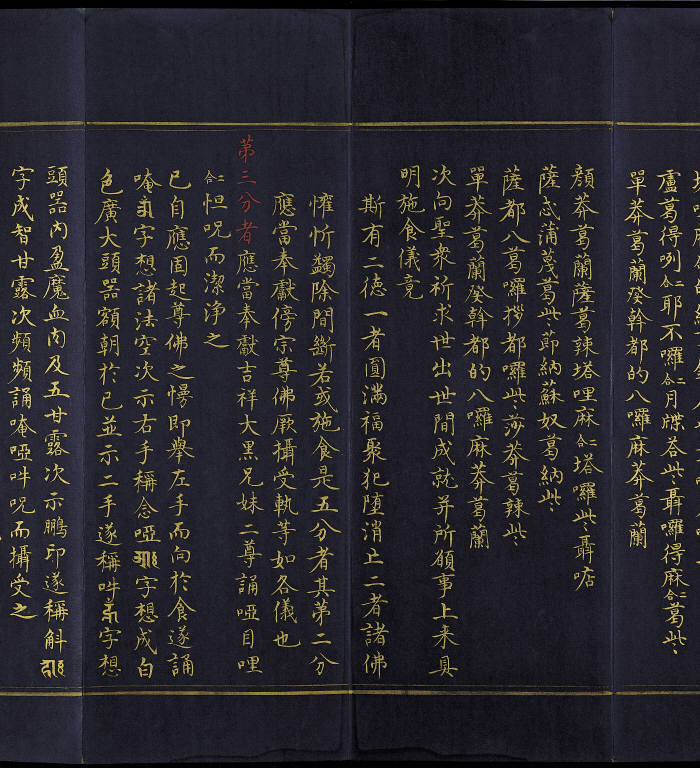 盧葛得咧合二耶不囉合二月牒荅此聶囉得麻合二葛此
單莽葛蘭癹幹都的八囉麻莽葛蘭
顔莽葛蘭薩葛竦塔哩麻合二塔囉此聶咶
薩忒蒲蔑葛此節納蘇奴葛納此
薩都八葛囉拶都囉此莎莽葛竦此
單莽葛蘭癹幹都的八囉麻莽葛蘭
次向聖衆祈求世出世間成就并所願事上来具
明施食儀竟
斯有二徳一者圓滿福聚犯墮消止二者諸佛
懽忻蠲除間斷若或施食是五分者其第二分
應當奉獻傍宗尊佛厥攝受執等如各儀也
第三分者應當奉獻吉祥大黑兄妹二尊誦啞目哩
合二怛呪而潔浄之
已自應固起尊佛之慢即舉左手而向於食遂誦
唵字想諸法空次示右手稱念啞字想成白
色廣大頭器額朝於已並示二手遂稱吽字想
頭器內盈魔血肉及五甘露次示鵬印遂稱斛
字成智甘露次頻頻誦唵啞吽呪而攝受之